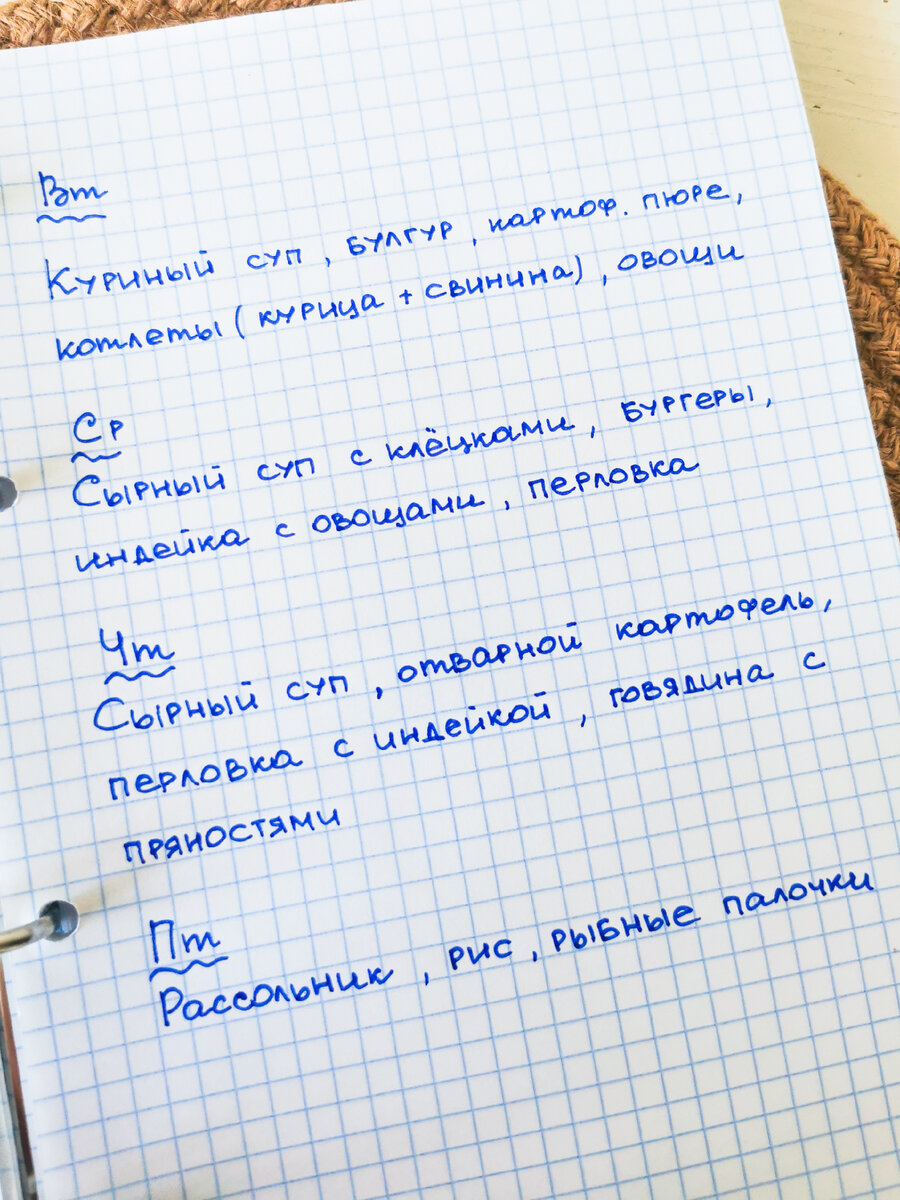 Вт
Куриный суп, булгур, картоф. пюре,
котлеты (курица + свинина), овощи
Ср
Сырный суп с клёцками, бургеры,
индейка с овощами, перловка
Чт
Сырный суп, отварной картофель,
перловка с индейкой, говядина с
пряностями
Пт
Рассольник, рис, рыбные палочки